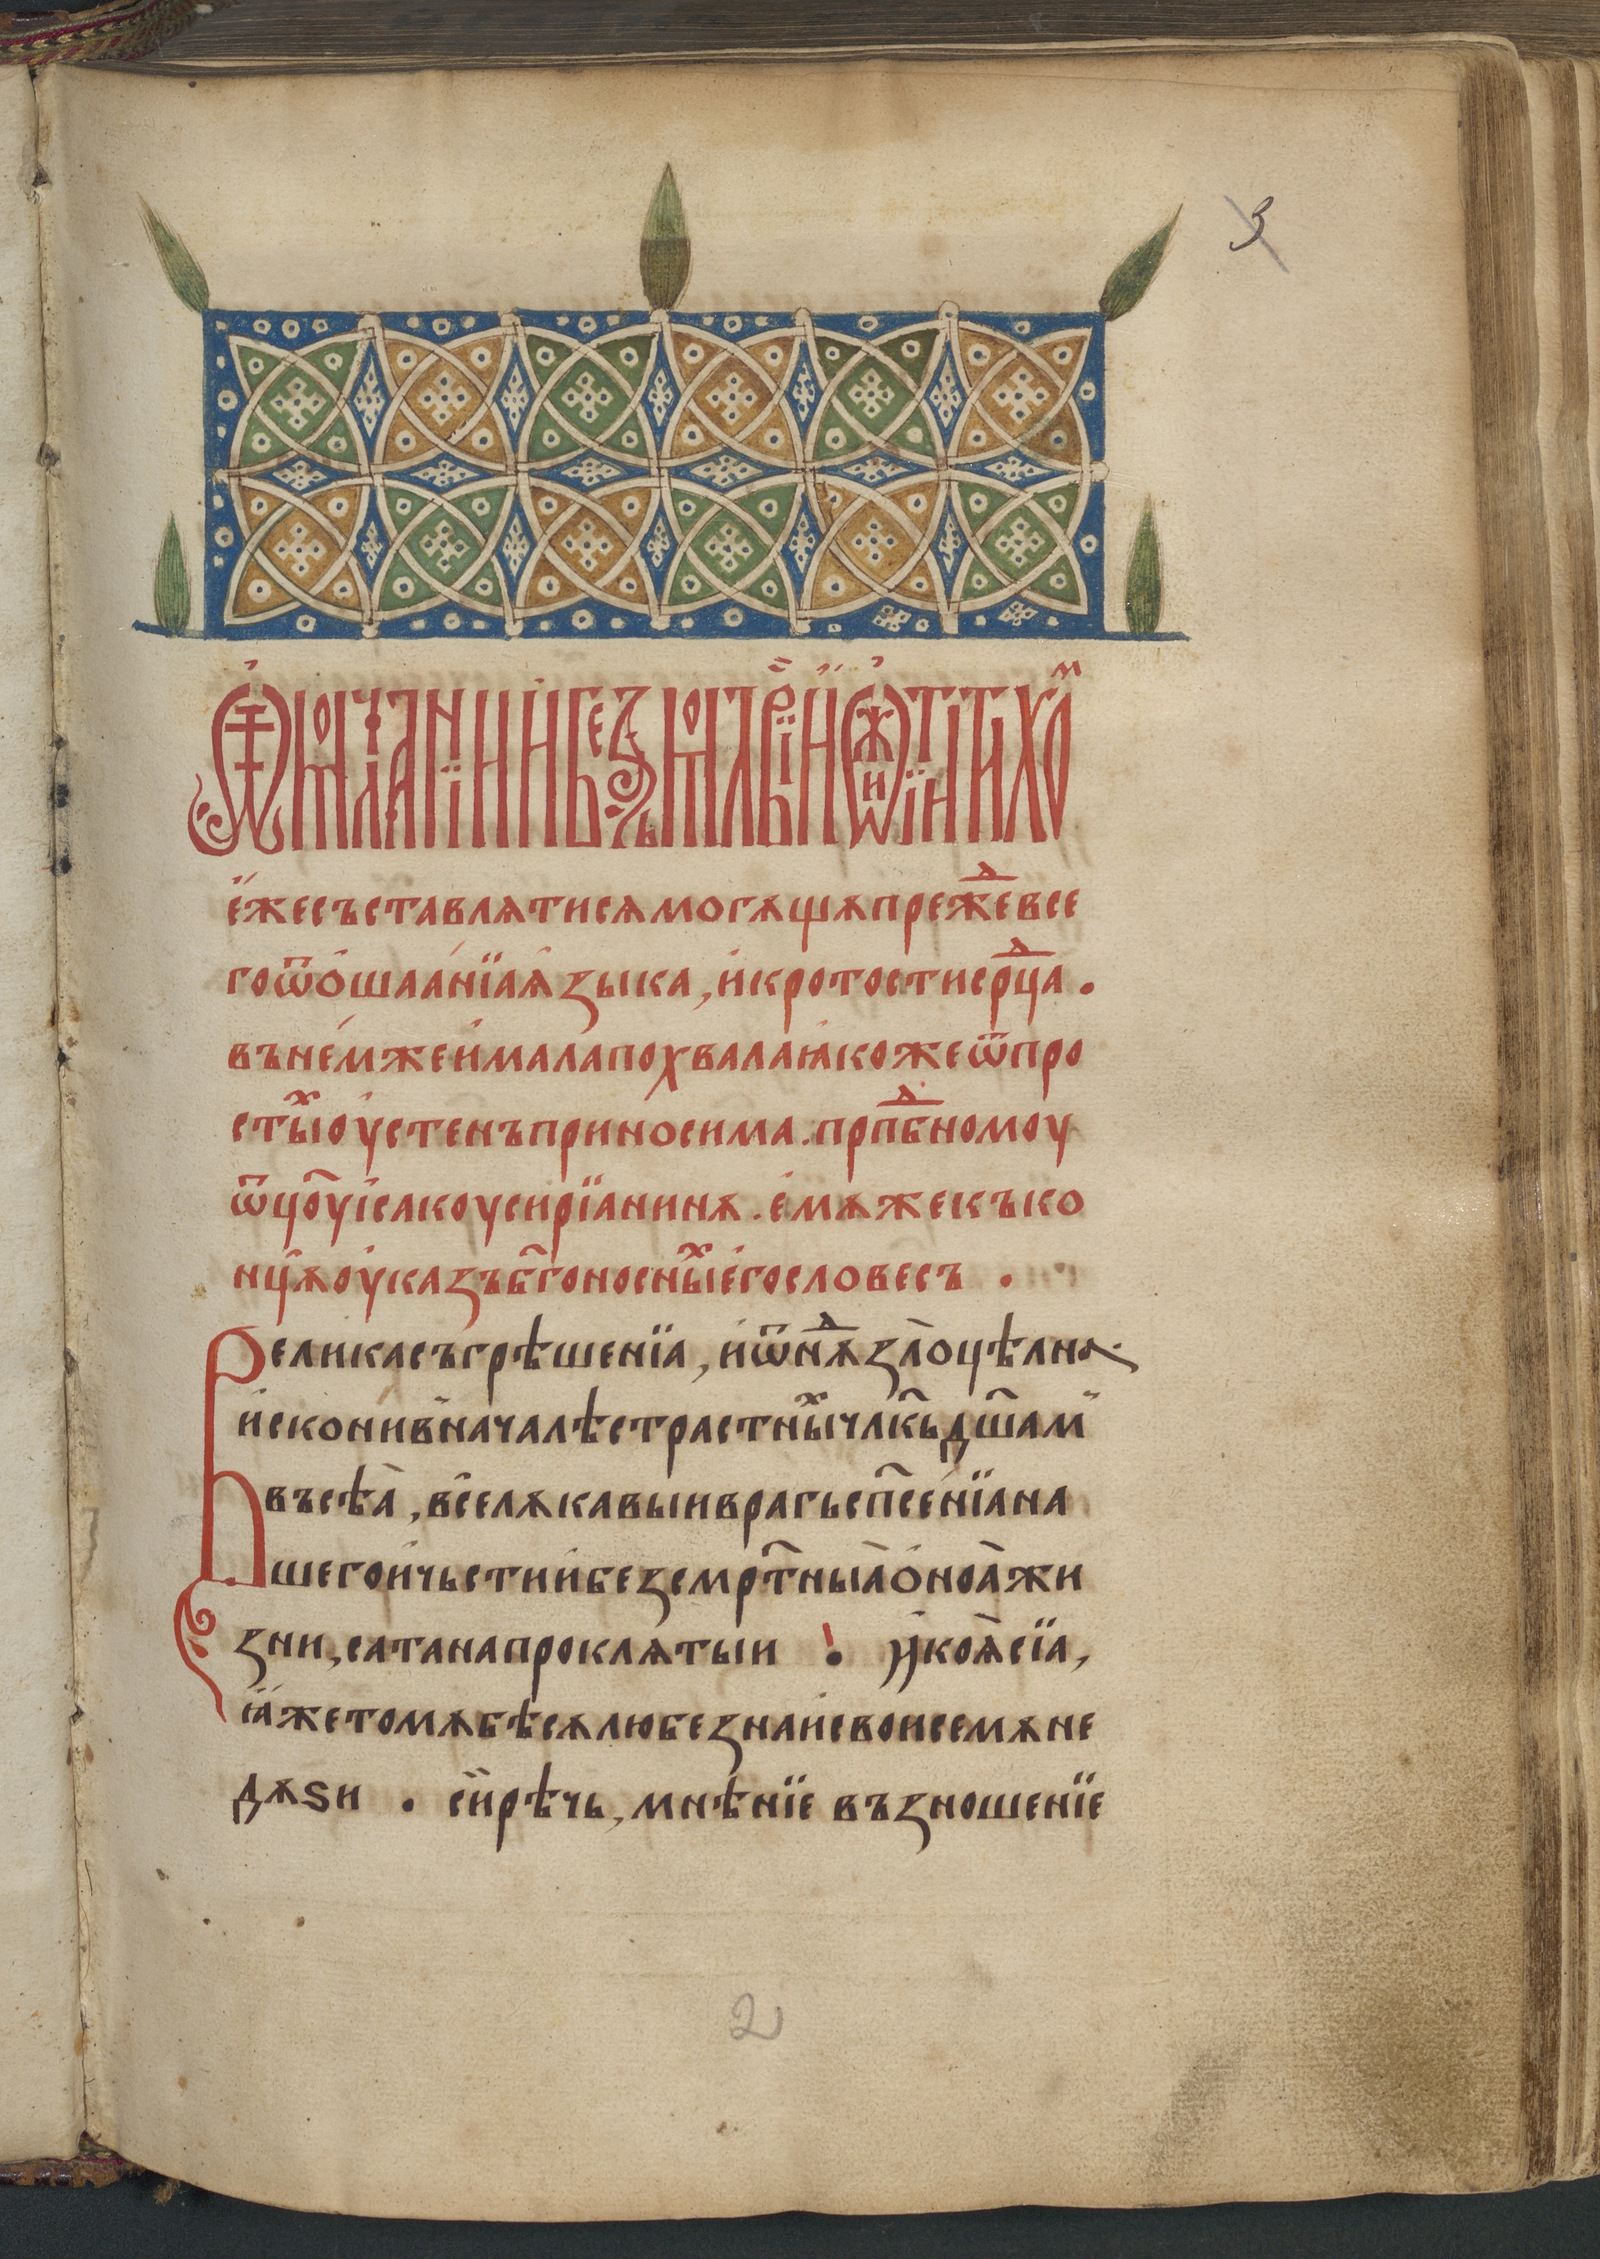 3
О мл҃чаніи и безмл҃віи и о житїи тихом
ё́жесъставлѧтисѧмогѫщѫпрежⷣевсе
гоѿо́шаа́нїаꙗ҆зыка, и҆кротостисрⷣца.
вънемжеи҆малапохвалаꙗ҆коже ѿпро
стыⷯоустенъприносима. прпⷣбномоу
ѿц҃оуі҆сакоусирїанинѫ. е҆мѫжекъко
нцѫоуказъбг҃оноснныⷯе҆гословесъ .
Великасъгрѣшенїа, и҆ѿнⷣѫзл̀оцѣлна
и҆сконивначалѣстрастныⷯчлк҃ьдш҃ам
въсѣа̀, вселѫкавыиврагьсп҃сенїана
шегои҆чьстии҆безсмрт҃ныа̀о҆ноа̀жи
зни, сатанапроклѧтыи . И҆коѧ̀сїа,
ꙗ҆жетомѫбѣсѧлюбезнаи҆своисемѫне
дѫѕи . сиирѣчь, мнѣнїе възношенїе
2